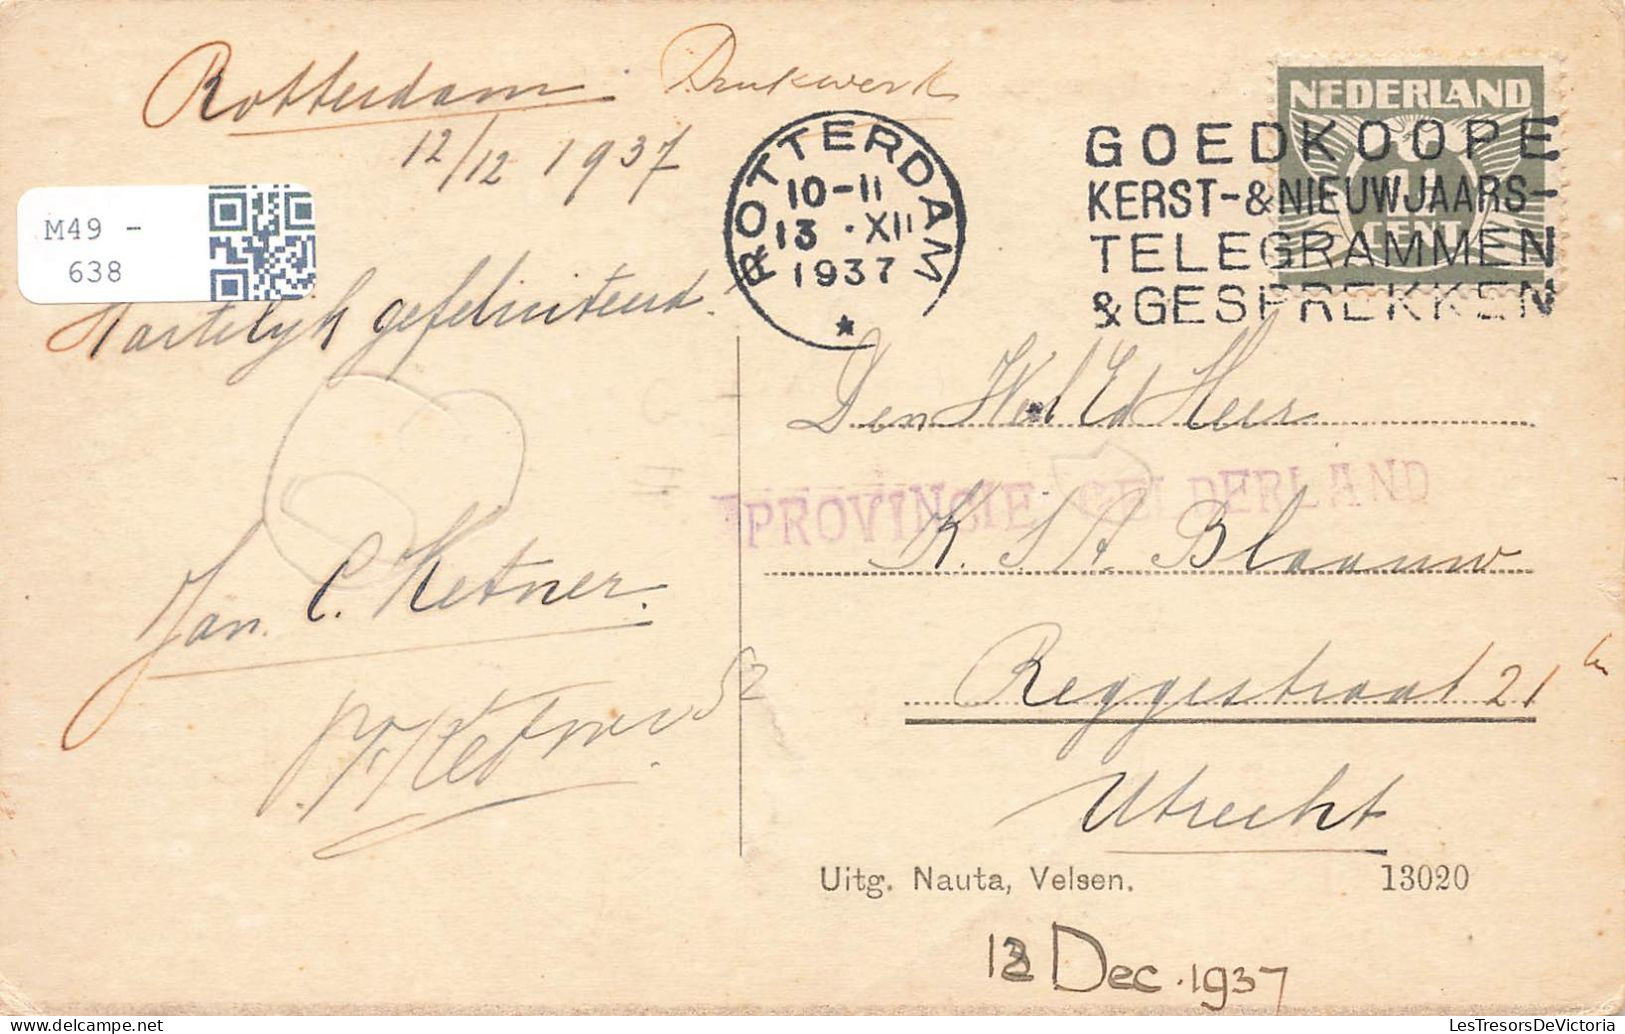 Rotterdam. Drukwerk
12/12 1937
M49 -
638
Hartelijk gefeliciteerd.
Jan. C. Ketner.
ROTTERDAM
10-11
13 • XII
1937
NEDERLAND
CENT
GOEDKOOPE
KERST-&NIEUWJAARS-
TELEGRAMMEN
&GESPREKKEN
Den Wel Ed Heer
PROVINCIE GELDERLAND
K. S A. Blaauw
Reggestraat 21
Utrecht
Uitg. Nauta, Velsen. 13020
Dec. 1937
www.LesTresorsDeVictoria.com